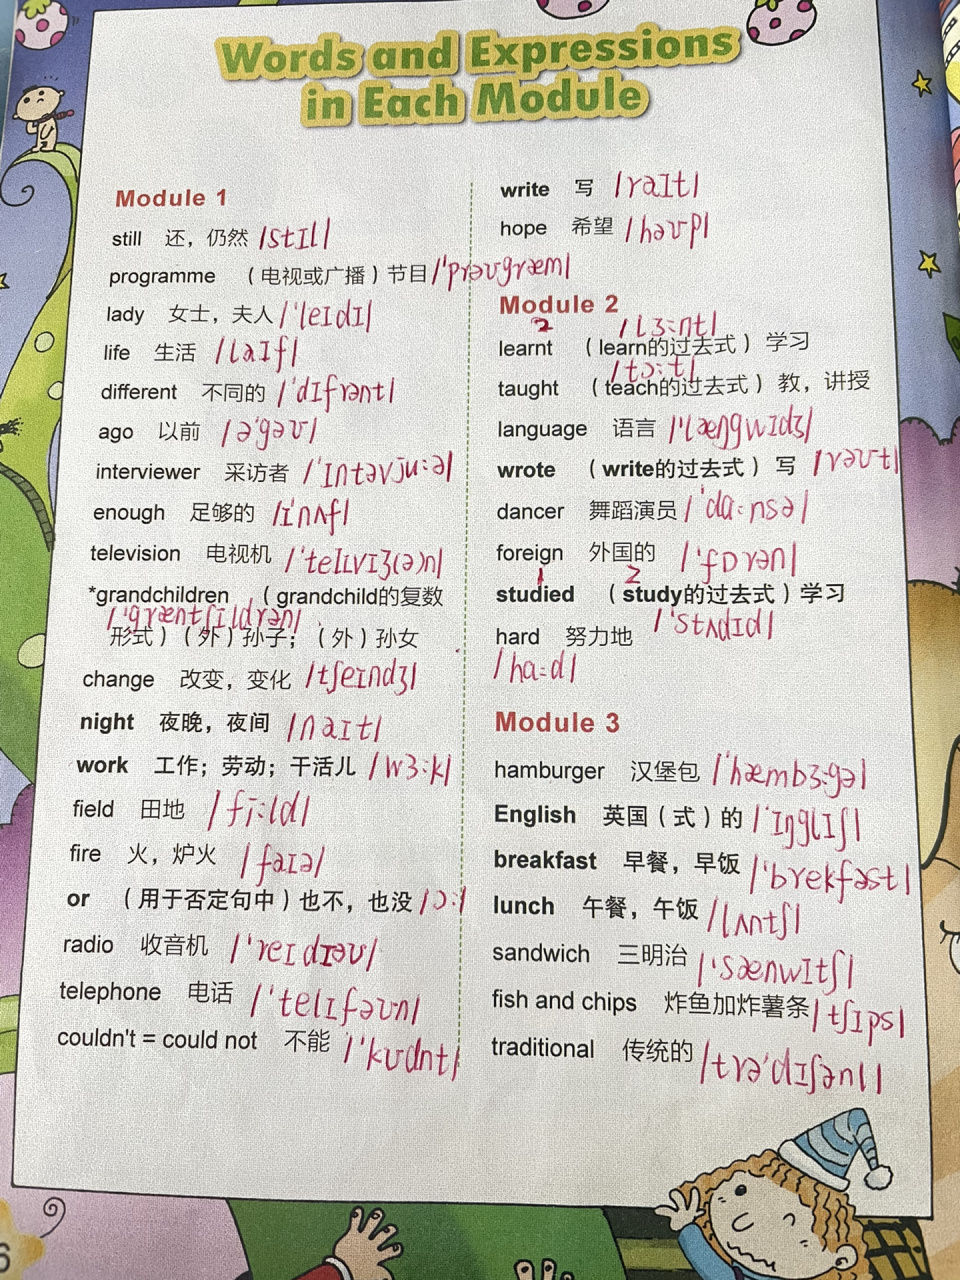 Words and Expressions
in Each Module
Module 1
still 还，仍然 /stɪl/
programme （电视或广播）节目 /ˈprəʊɡræm/
lady 女士，夫人 /ˈleɪdɪ/
life 生活 /laɪf/
different 不同的 /ˈdɪfrənt/
ago 以前 /əˈɡəʊ/
interviewer 采访者 /ˈɪntəvjuːə/
enough 足够的 /ɪˈnʌf/
television 电视机 /ˈtelɪvɪʒ(ə)n/
*grandchildren （grandchild的复数
/ˈɡræntʃɪldrən/
形式）（外）孙子；（外）孙女
change 改变，变化 /tʃeɪndʒ/
night 夜晚，夜间 /naɪt/
work 工作；劳动；干活儿 /wɜːk/
field 田地 /fiːld/
fire 火，炉火 /faɪə/
or （用于否定句中）也不，也没 /ɔː/
radio 收音机 /ˈreɪdɪəʊ/
telephone 电话 /ˈtelɪfəʊn/
couldn't = could not 不能 /ˈkʊdnt/
write 写 /raɪt/
hope 希望 /həʊp/
Module 2
2 /lɜːnt/
learnt （learn的过去式）学习
/tɔːt/
taught （teach的过去式）教，讲授
language 语言 /ˈlæŋɡwɪdʒ/
wrote （write的过去式）写 /rəʊt/
dancer 舞蹈演员 /ˈdɑːnsə/
foreign 外国的 /ˈfɒrən/
1 2
studied （study的过去式）学习
hard 努力地 /ˈstʌdɪd/
/hɑːd/
Module 3
hamburger 汉堡包 /ˈhæmbɜːɡə/
English 英国（式）的 /ˈɪŋɡlɪʃ/
breakfast 早餐，早饭 /ˈbrekfəst/
lunch 午餐，午饭 /lʌntʃ/
sandwich 三明治 /ˈsænwɪtʃ/
fish and chips 炸鱼加炸薯条 /tʃɪps/
traditional 传统的 /trəˈdɪʃənl/
6